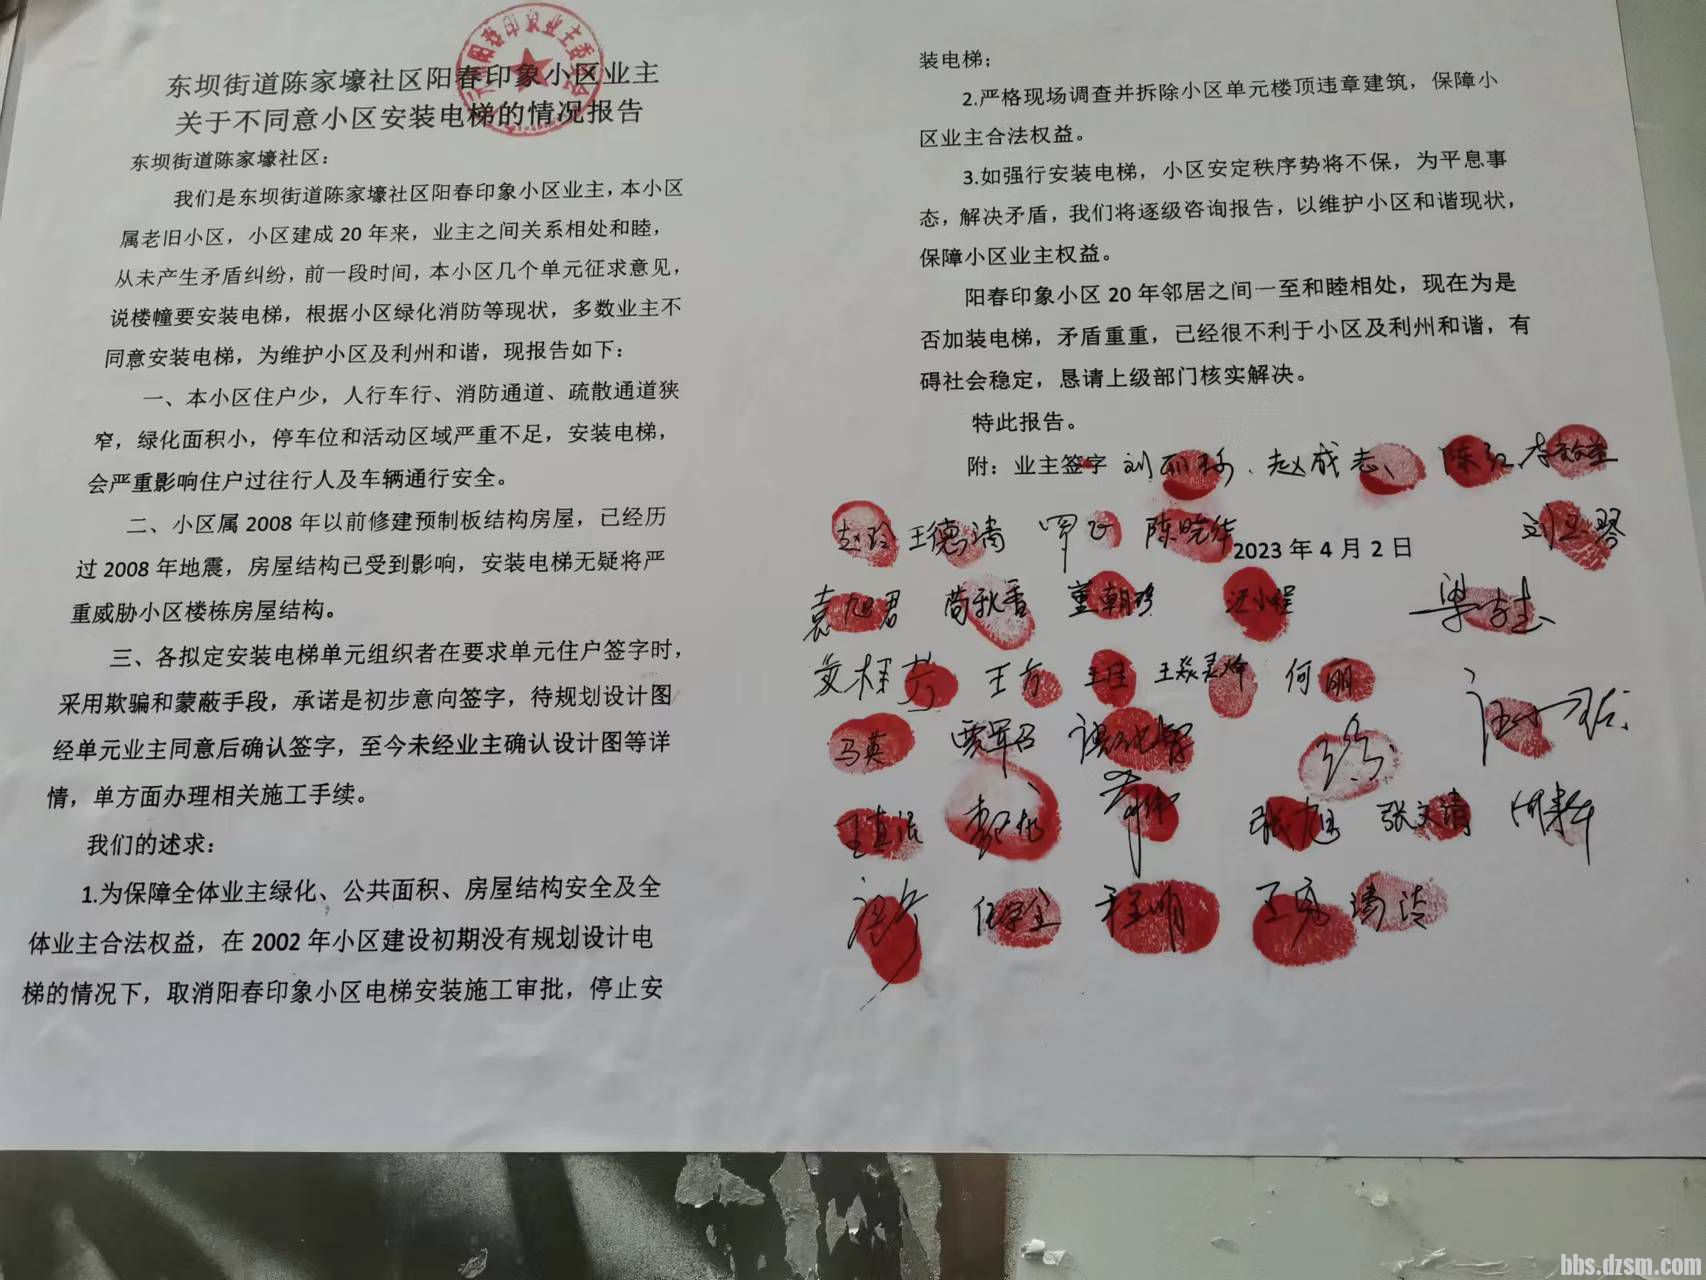 东坝街道陈家壕社区阳春印象小区业主
关于不同意小区安装电梯的情况报告
东坝街道陈家壕社区：
我们是东坝街道陈家壕社区阳春印象小区业主，本小区
属老旧小区，小区建成 20 年来，业主之间关系相处和睦，
从未产生矛盾纠纷，前一段时间，本小区几个单元征求意见，
说楼幢要安装电梯，根据小区绿化消防等现状，多数业主不
同意安装电梯，为维护小区及利州和谐，现报告如下：
一、本小区住户少，人行车行、消防通道、疏散通道狭
窄，绿化面积小，停车位和活动区域严重不足，安装电梯，
会严重影响住户过往行人及车辆通行安全。
二、小区属 2008 年以前修建预制板结构房屋，已经历
过 2008 年地震，房屋结构已受到影响，安装电梯无疑将严
重威胁小区楼栋房屋结构。
三、各拟定安装电梯单元组织者在要求单元住户签字时，
采用欺骗和蒙蔽手段，承诺是初步意向签字，待规划设计图
经单元业主同意后确认签字，至今未经业主确认设计图等详
情，单方面办理相关施工手续。
我们的述求：
1.为保障全体业主绿化、公共面积、房屋结构安全及全
体业主合法权益，在 2002 年小区建设初期没有规划设计电
梯的情况下，取消阳春印象小区电梯安装施工审批，停止安
装电梯；
2.严格现场调查并拆除小区单元楼顶违章建筑，保障小
区业主合法权益。
3.如强行安装电梯，小区安定秩序势将不保，为平息事
态，解决矛盾，我们将逐级咨询报告，以维护小区和谐现状，
保障小区业主权益。
阳春印象小区 20 年邻居之间一至和睦相处，现在为是
否加装电梯，矛盾重重，已经很不利于小区及利州和谐，有
碍社会稳定，恳请上级部门核实解决。
特此报告。
附：业主签字 赵成志 陈红
赵玲 王德清 罗飞 陈晓华 2023 年 4 月 2 日
袁旭君 苟秋香 董朝珍
王方 王佳 何丽
马英
张旭 张文清
程明 王亮
bbs.dzsm.com